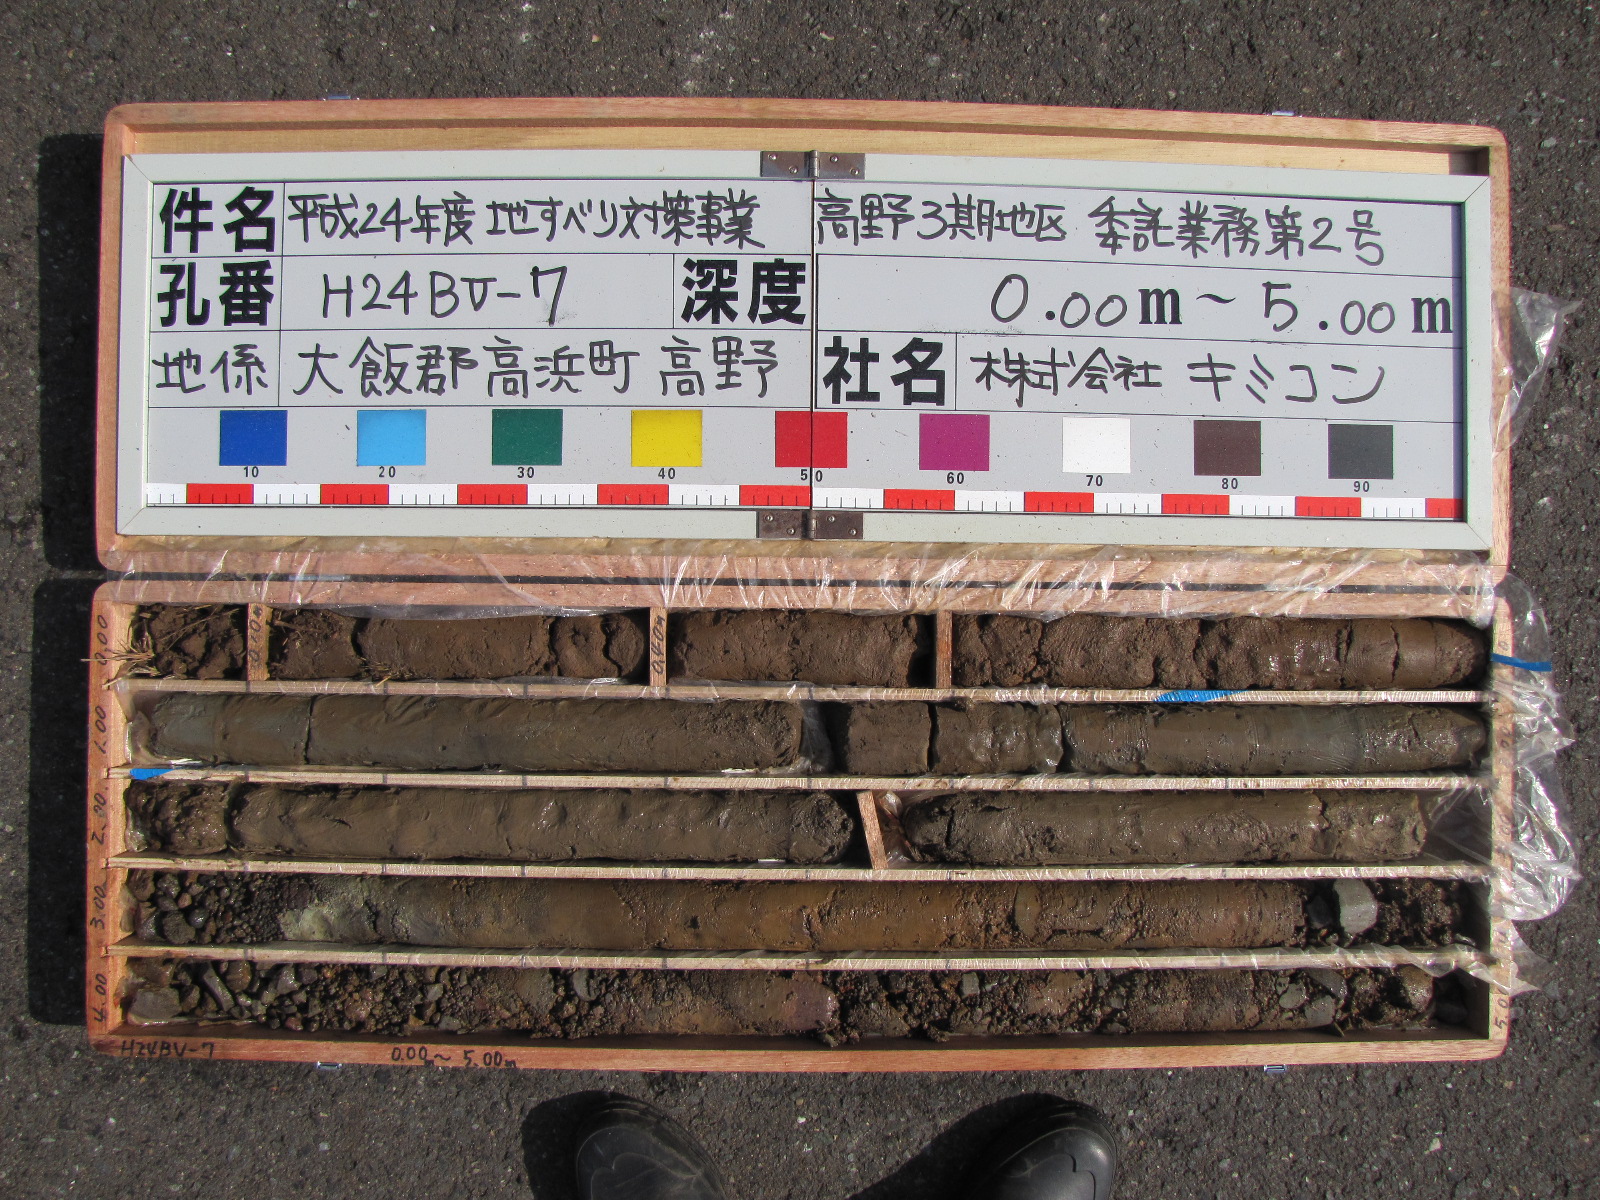 件名 平成24年度 地すべり対策事業 高野3期地区 委託業務第2号
孔番 H24BV-7 深度 0.00m～5.00m
地係 大飯郡高浜町 高野 社名 株式会社 キミコン
10 20 30 40 50 60 70 80 90
0.00
0.40m
1.00
2.00
3.00
4.00
H24BV-7 0.00m～5.00m